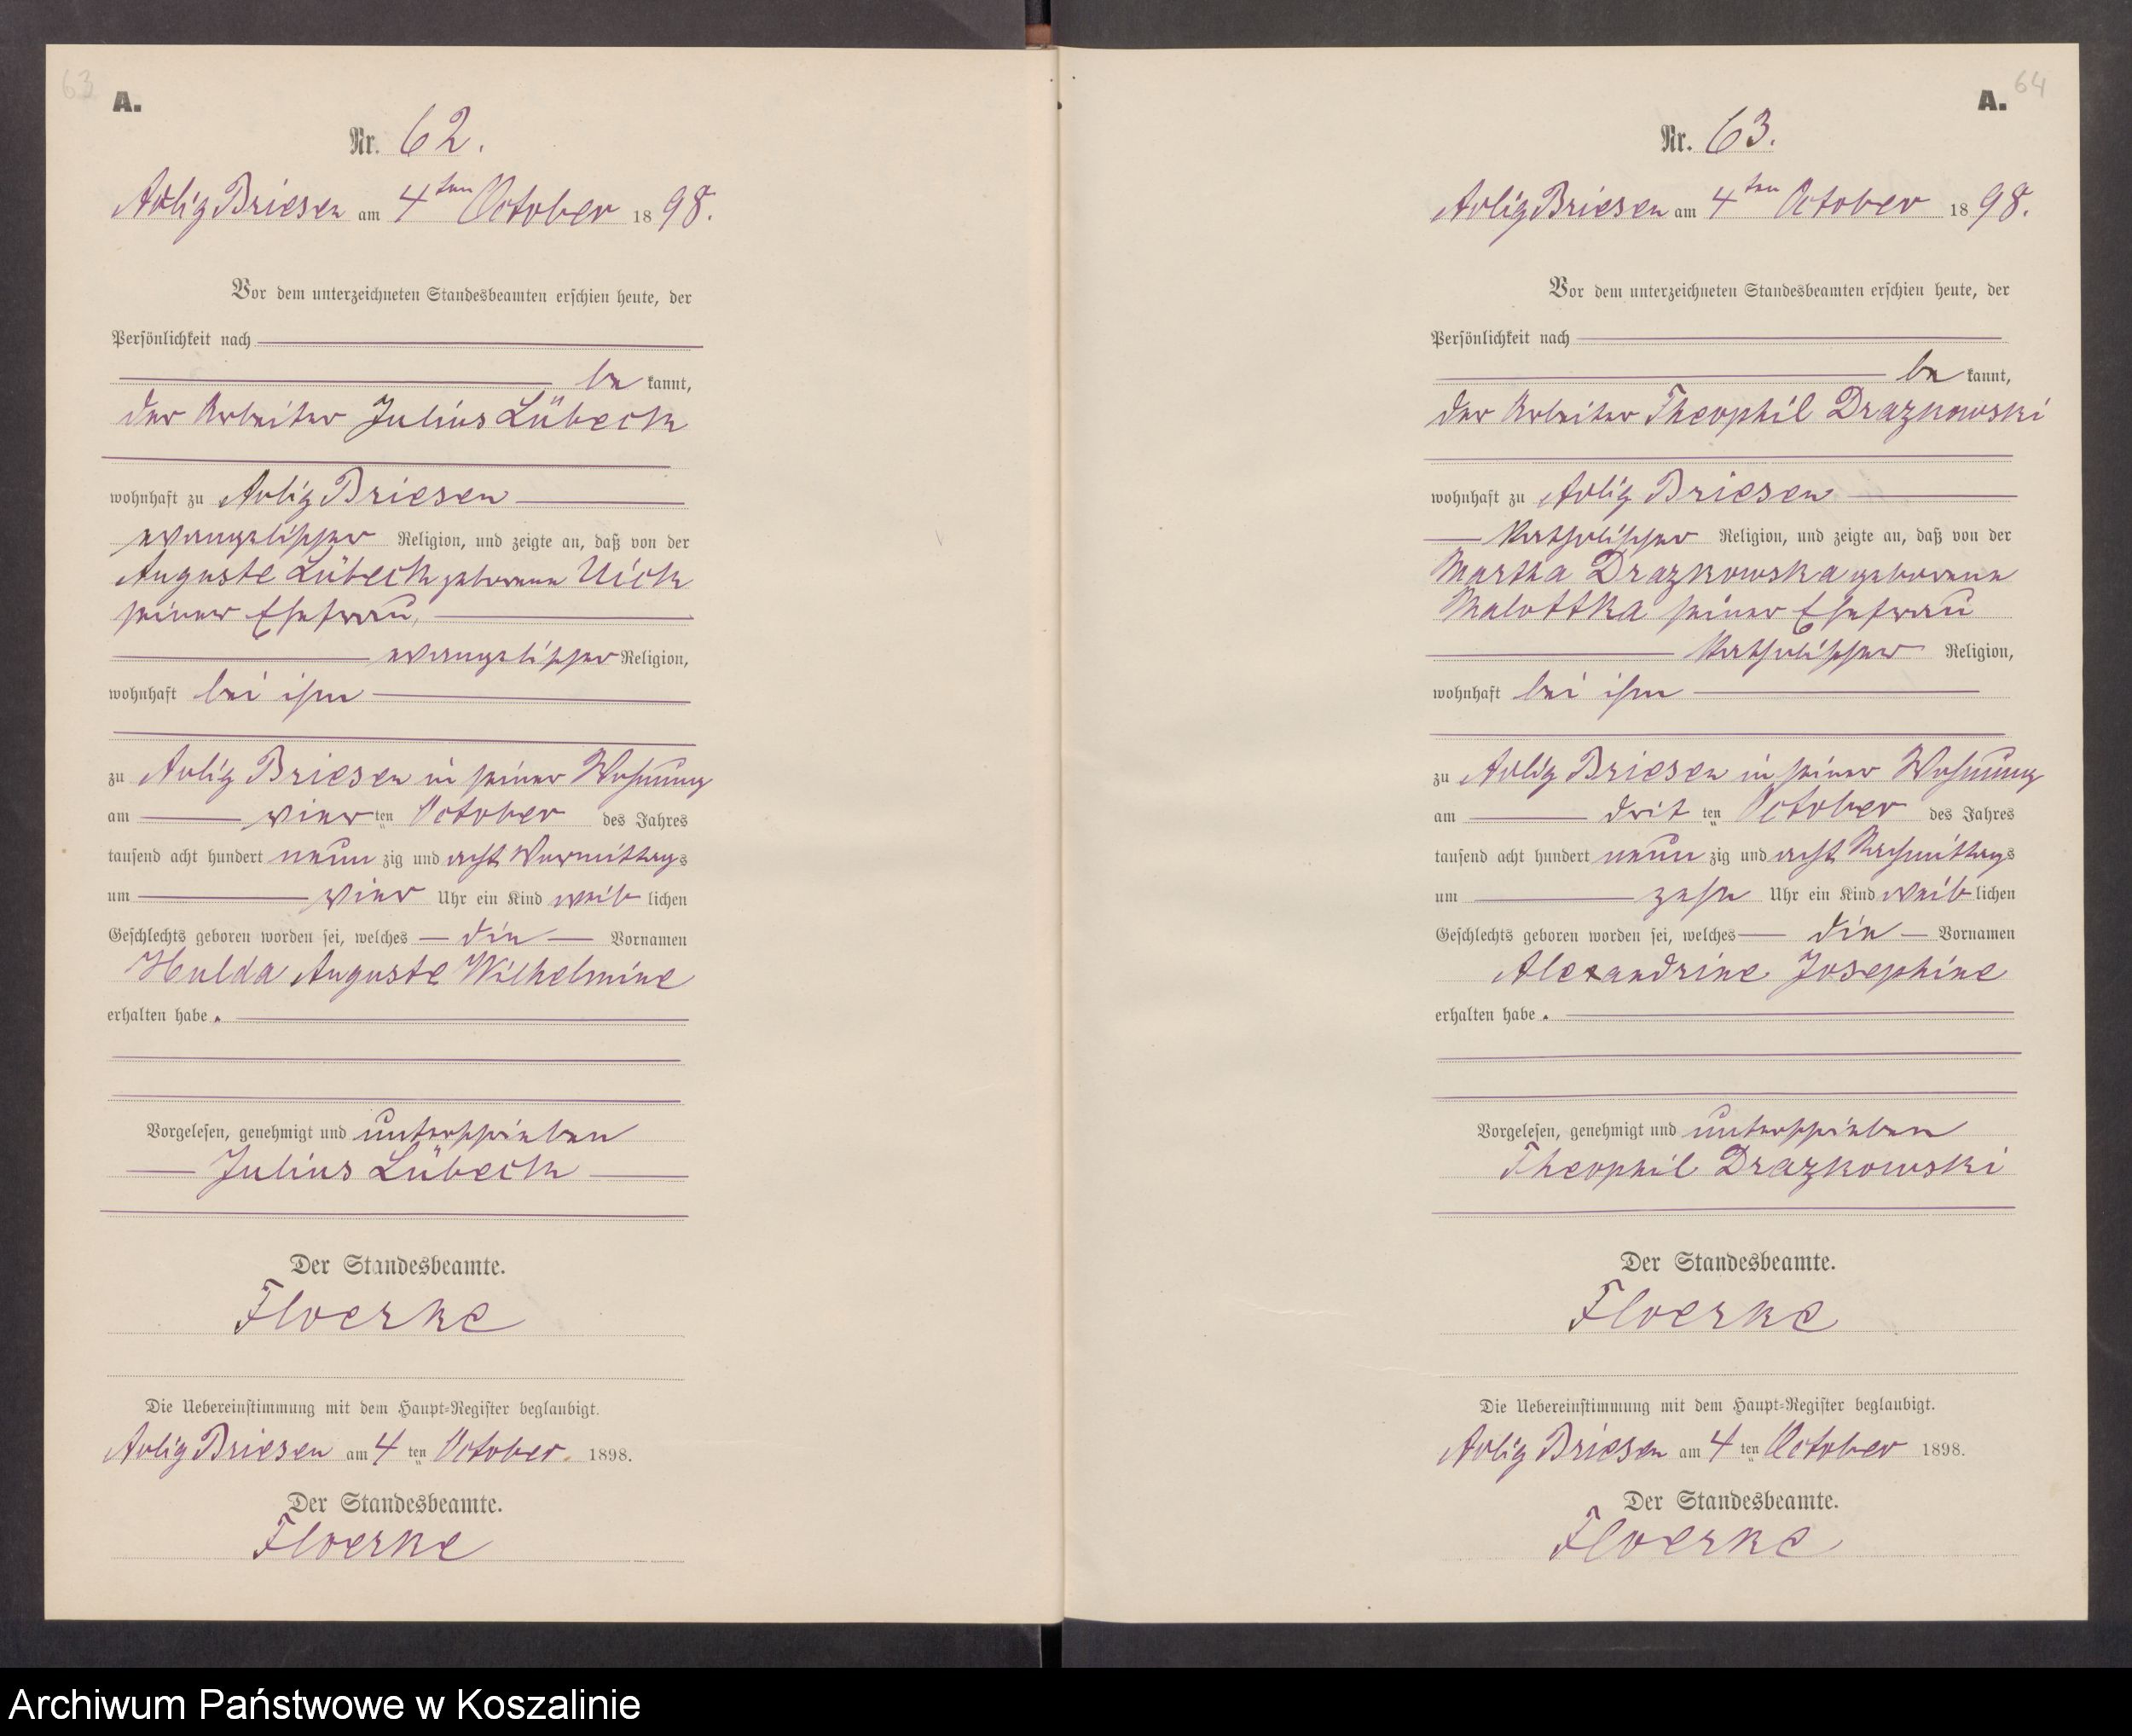 63
A.
Nr. 62.
Adlig Briesen am 4ten October 1898.
Vor dem unterzeichneten Standesbeamten erschien heute, der
Persönlichkeit nach
be kannt,
der Arbeiter Julius Lübeck
wohnhaft zu Adlig Briesen
evangelischer Religion, und zeigte an, daß von der
Auguste Lübeck geborene Uick
seiner Ehefrau,
evangelischer Religion,
wohnhaft bei ihm
zu Adlig Briesen in seiner Wohnung
am vier ten October des Jahres
tausend acht hundert neun zig und acht Vormittags
um vier Uhr ein Kind weib lichen
Geschlechts geboren worden sei, welches die Vornamen
Hulda Auguste Wilhelmine
erhalten habe.
Vorgelesen, genehmigt und unterschrieben
Julius Lübeck
Der Standesbeamte.
Floerke
Die Uebereinstimmung mit dem Haupt-Register beglaubigt.
Adlig Briesen am 4 ten October. 1898.
Der Standesbeamte.
Floerke
64
A.
Nr. 63.
Adlig Briesen am 4ten October 1898.
Vor dem unterzeichneten Standesbeamten erschien heute, der
Persönlichkeit nach
be kannt,
der Arbeiter Theophil Drazkowski
wohnhaft zu Adlig Briesen
katholischer Religion, und zeigte an, daß von der
Martha Drazkowska geborene
Malottka seiner Ehefrau
katholischer Religion,
wohnhaft bei ihm
zu Adlig Briesen in seiner Wohnung
am drit ten October des Jahres
tausend acht hundert neun zig und acht Nachmittags
um zehn Uhr ein Kind weib lichen
Geschlechts geboren worden sei, welches die Vornamen
Alexandrine Josephine
erhalten habe.
Vorgelesen, genehmigt und unterschrieben
Theophil Drazkowski
Der Standesbeamte.
Floerke
Die Uebereinstimmung mit dem Haupt-Register beglaubigt.
Adlig Briesen am 4 ten October 1898.
Der Standesbeamte.
Floerke
Archiwum Państwowe w Koszalinie